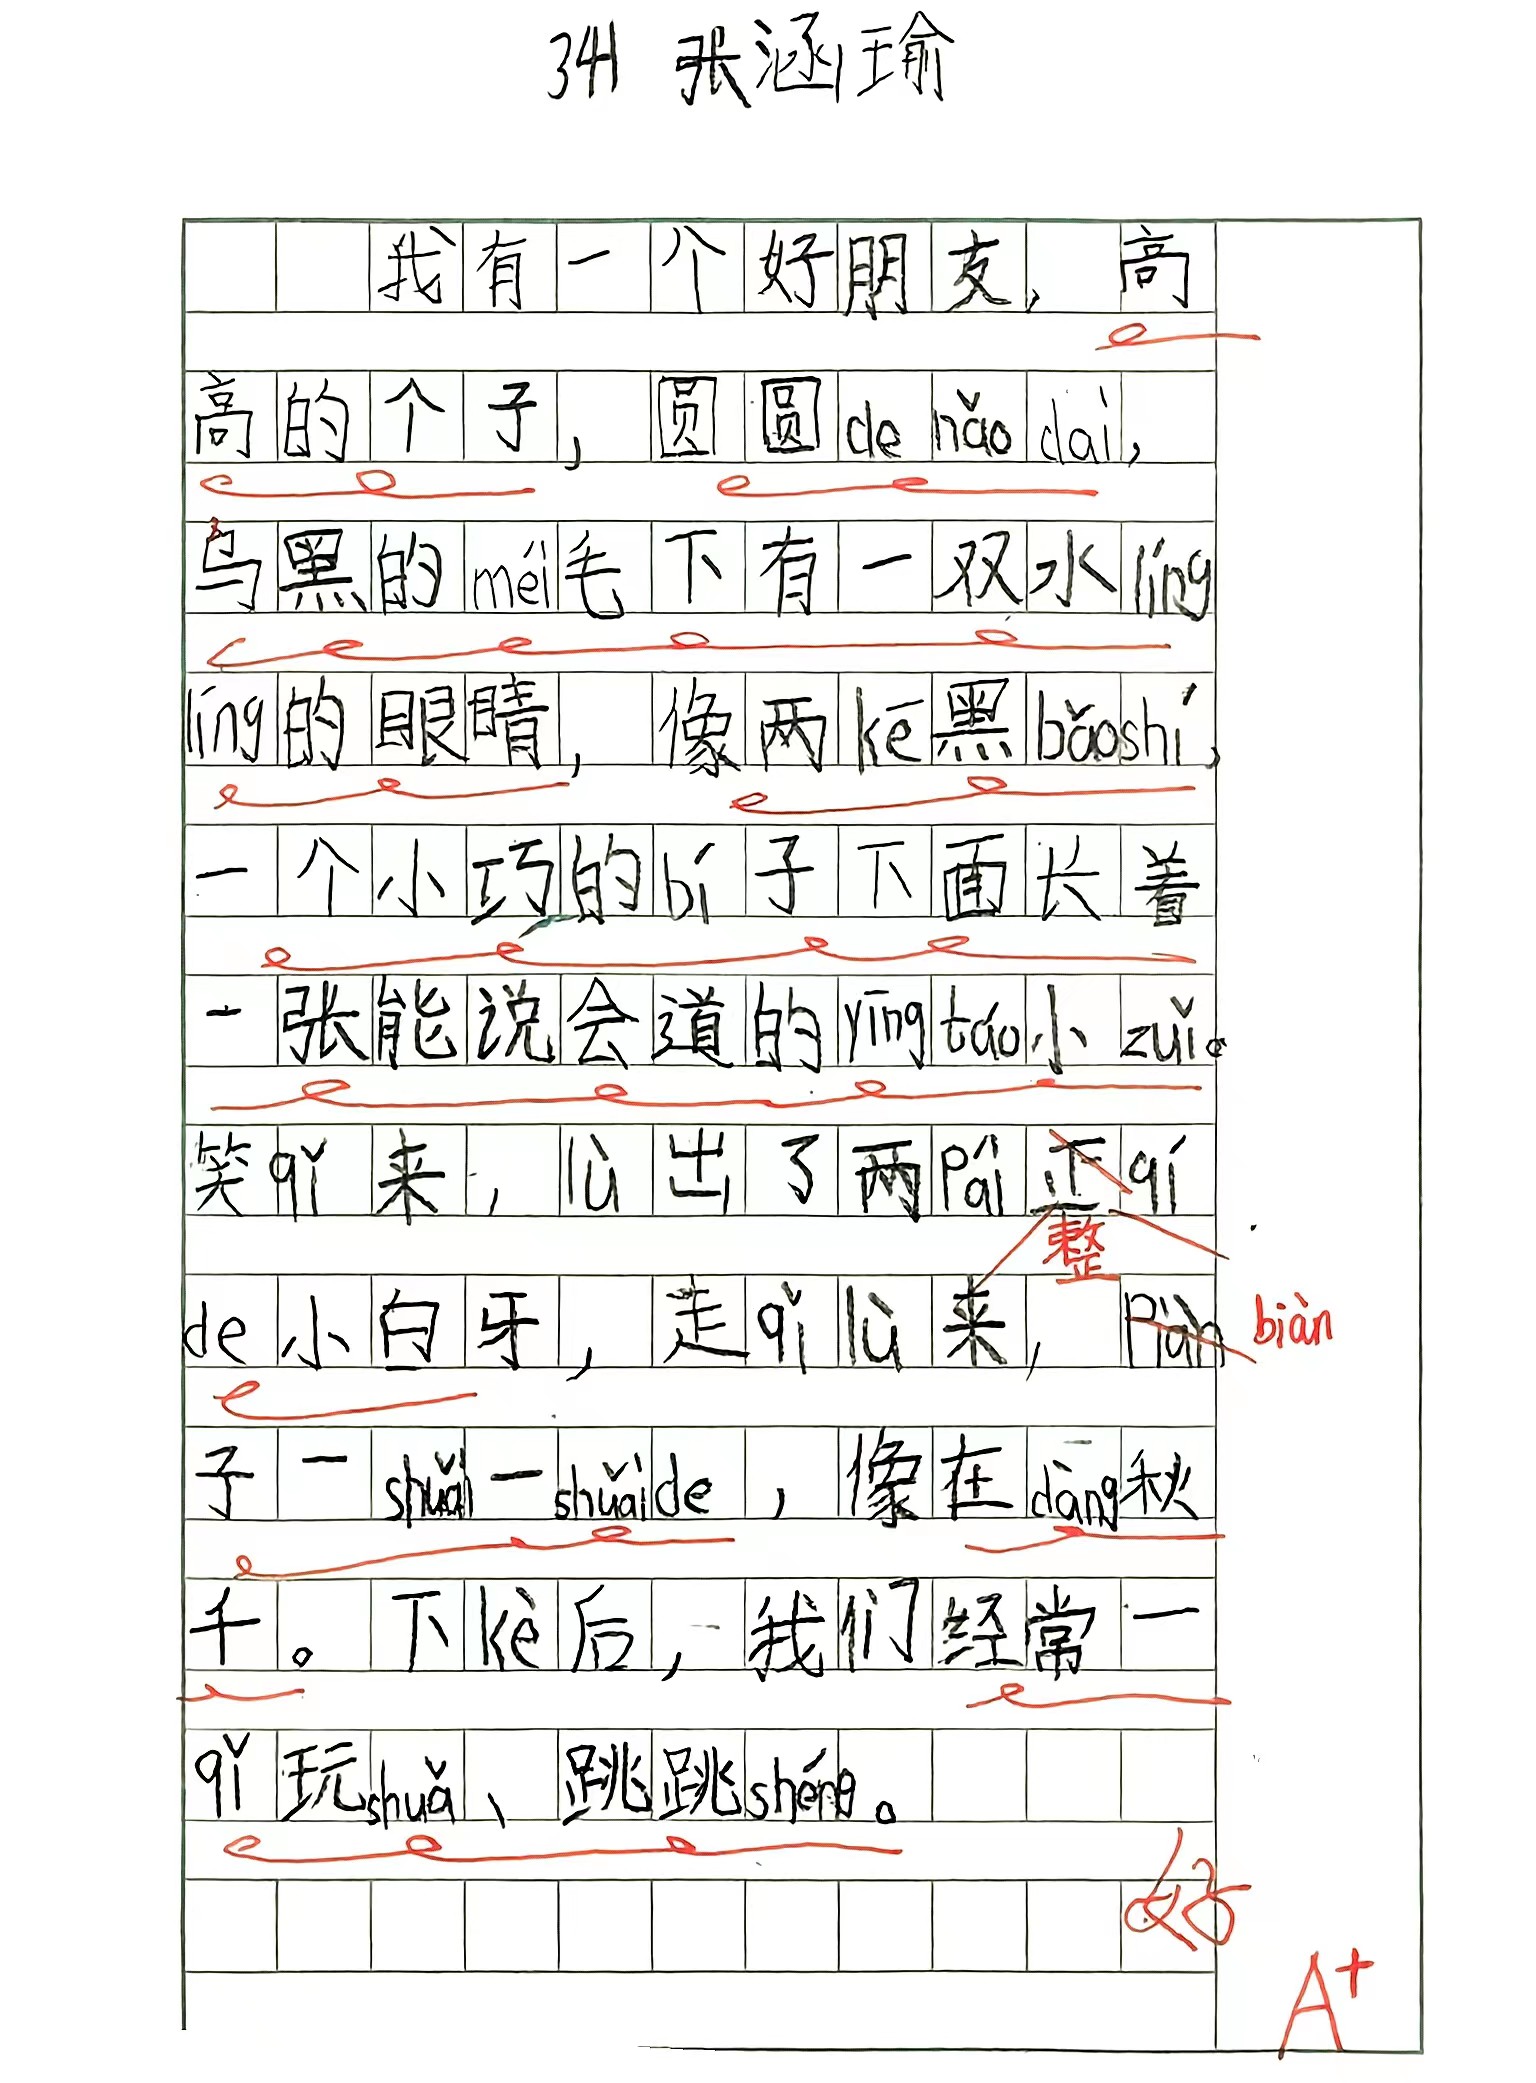 34 张涵瑜
我有一个好朋友，高
高的个子，圆圆de nǎo dai，
乌黑的méi毛下有一双水líng
líng的眼睛，像两kē黑bǎoshí，
一个小巧的bí子下面长着
一张能说会道的yīng táo小zuǐ。
笑qǐ来，lù出了两pái正qí
整
de小白牙，走qǐ lù来，Piàn
biàn
子一shuǎi一shuǎi de，像在dàng秋
千。下kè后，我们经常一
qǐ玩shuǎ、跳跳shéng。
好
A+